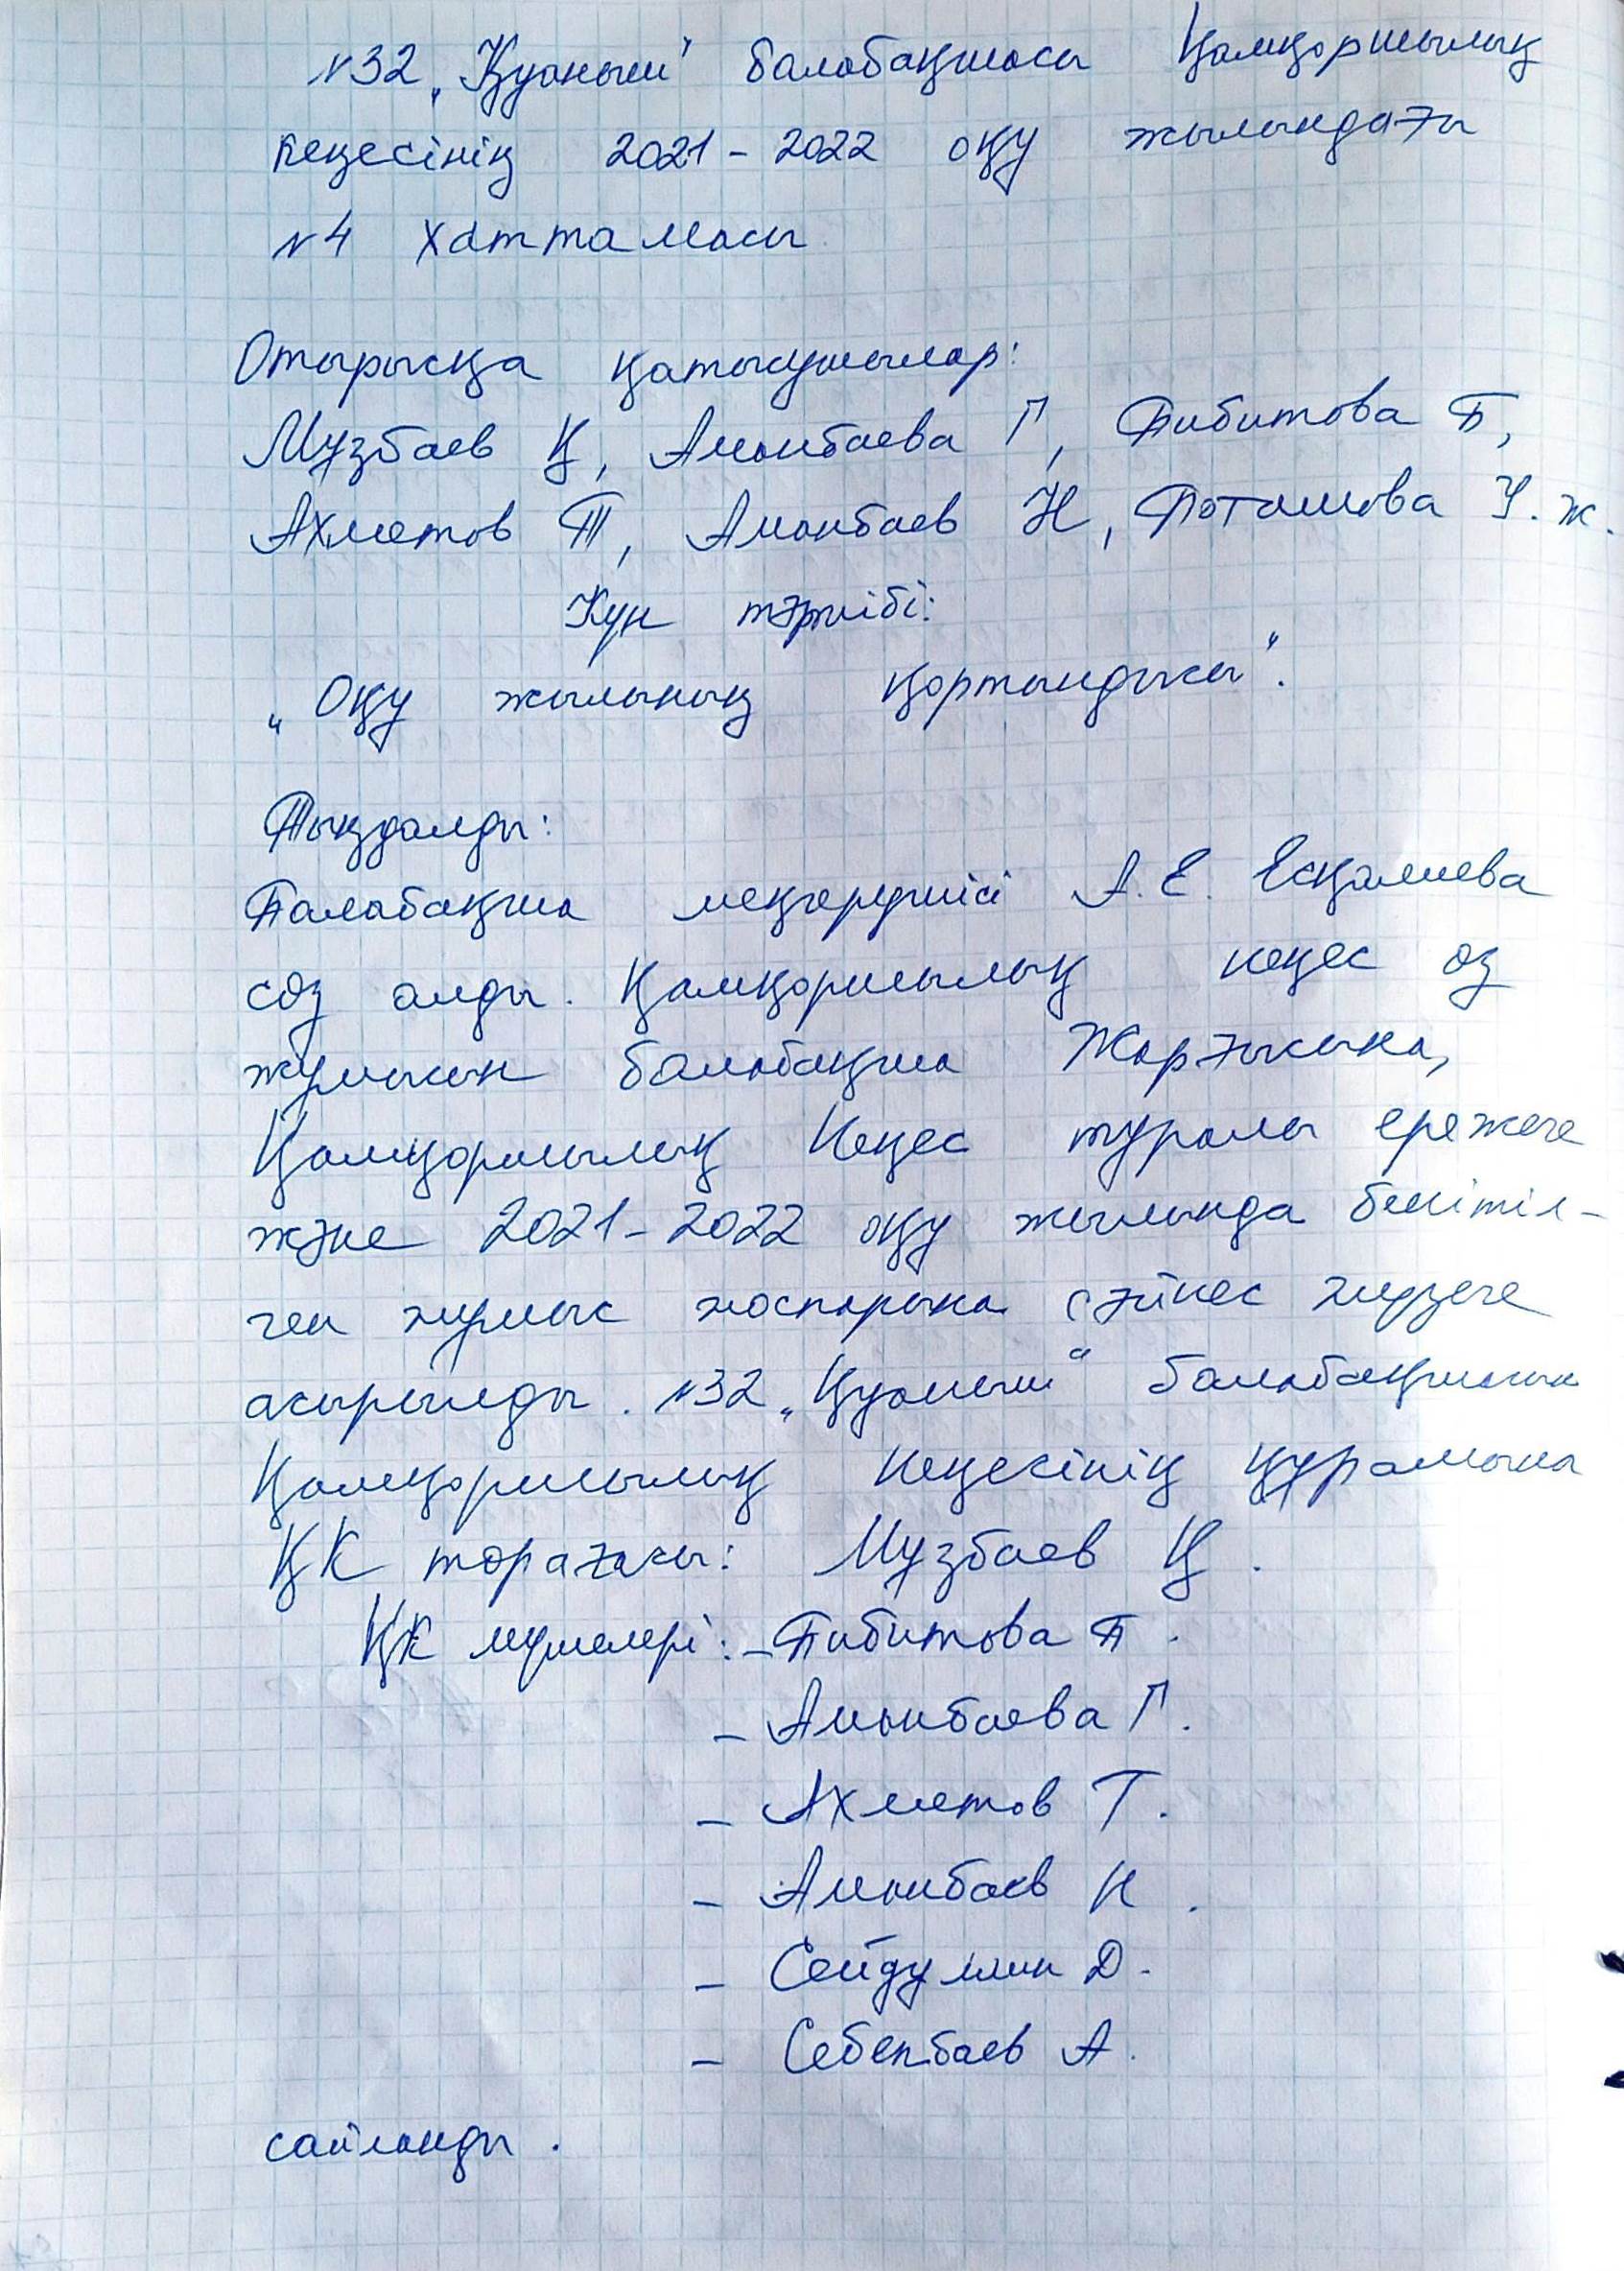 №32 „Қуаныш" балабақшасы Қамқоршылық
кеңесінің 2021-2022 оқу жылындағы
№4 хаттамасы
Отырысқа қатысушылар:
Мұзбаев Қ, Аманбаева Г, Бибитова Б,
Ахметов Т, Аманбаев Н, Поташова У.Ж.
Күн тәртібі:
„Оқу жылының қортындысы".
Тыңдалды:
Балабақша меңгерушісі А.Е. Есқалиева
сөз алды. Қамқоршылық кеңес өз
жұмысын балабақша Жарғысына,
Қамқоршылық Кеңес туралы ережеге
және 2021-2022 оқу жылында бекітіл-
ген жұмыс жоспарына сәйкес жүзеге
асырылды. №32 „Қуаныш" балабақшасын
Қамқоршылық кеңесінің құрамына
ҚК төрағасы: Мұзбаев Қ.
ҚК мүшелері: - Бибитова Б.
- Аманбаева Г.
- Ахметов Т.
- Аманбаев Н.
- Сейдуллин Д.
- Себепбаев А.
сайланды.